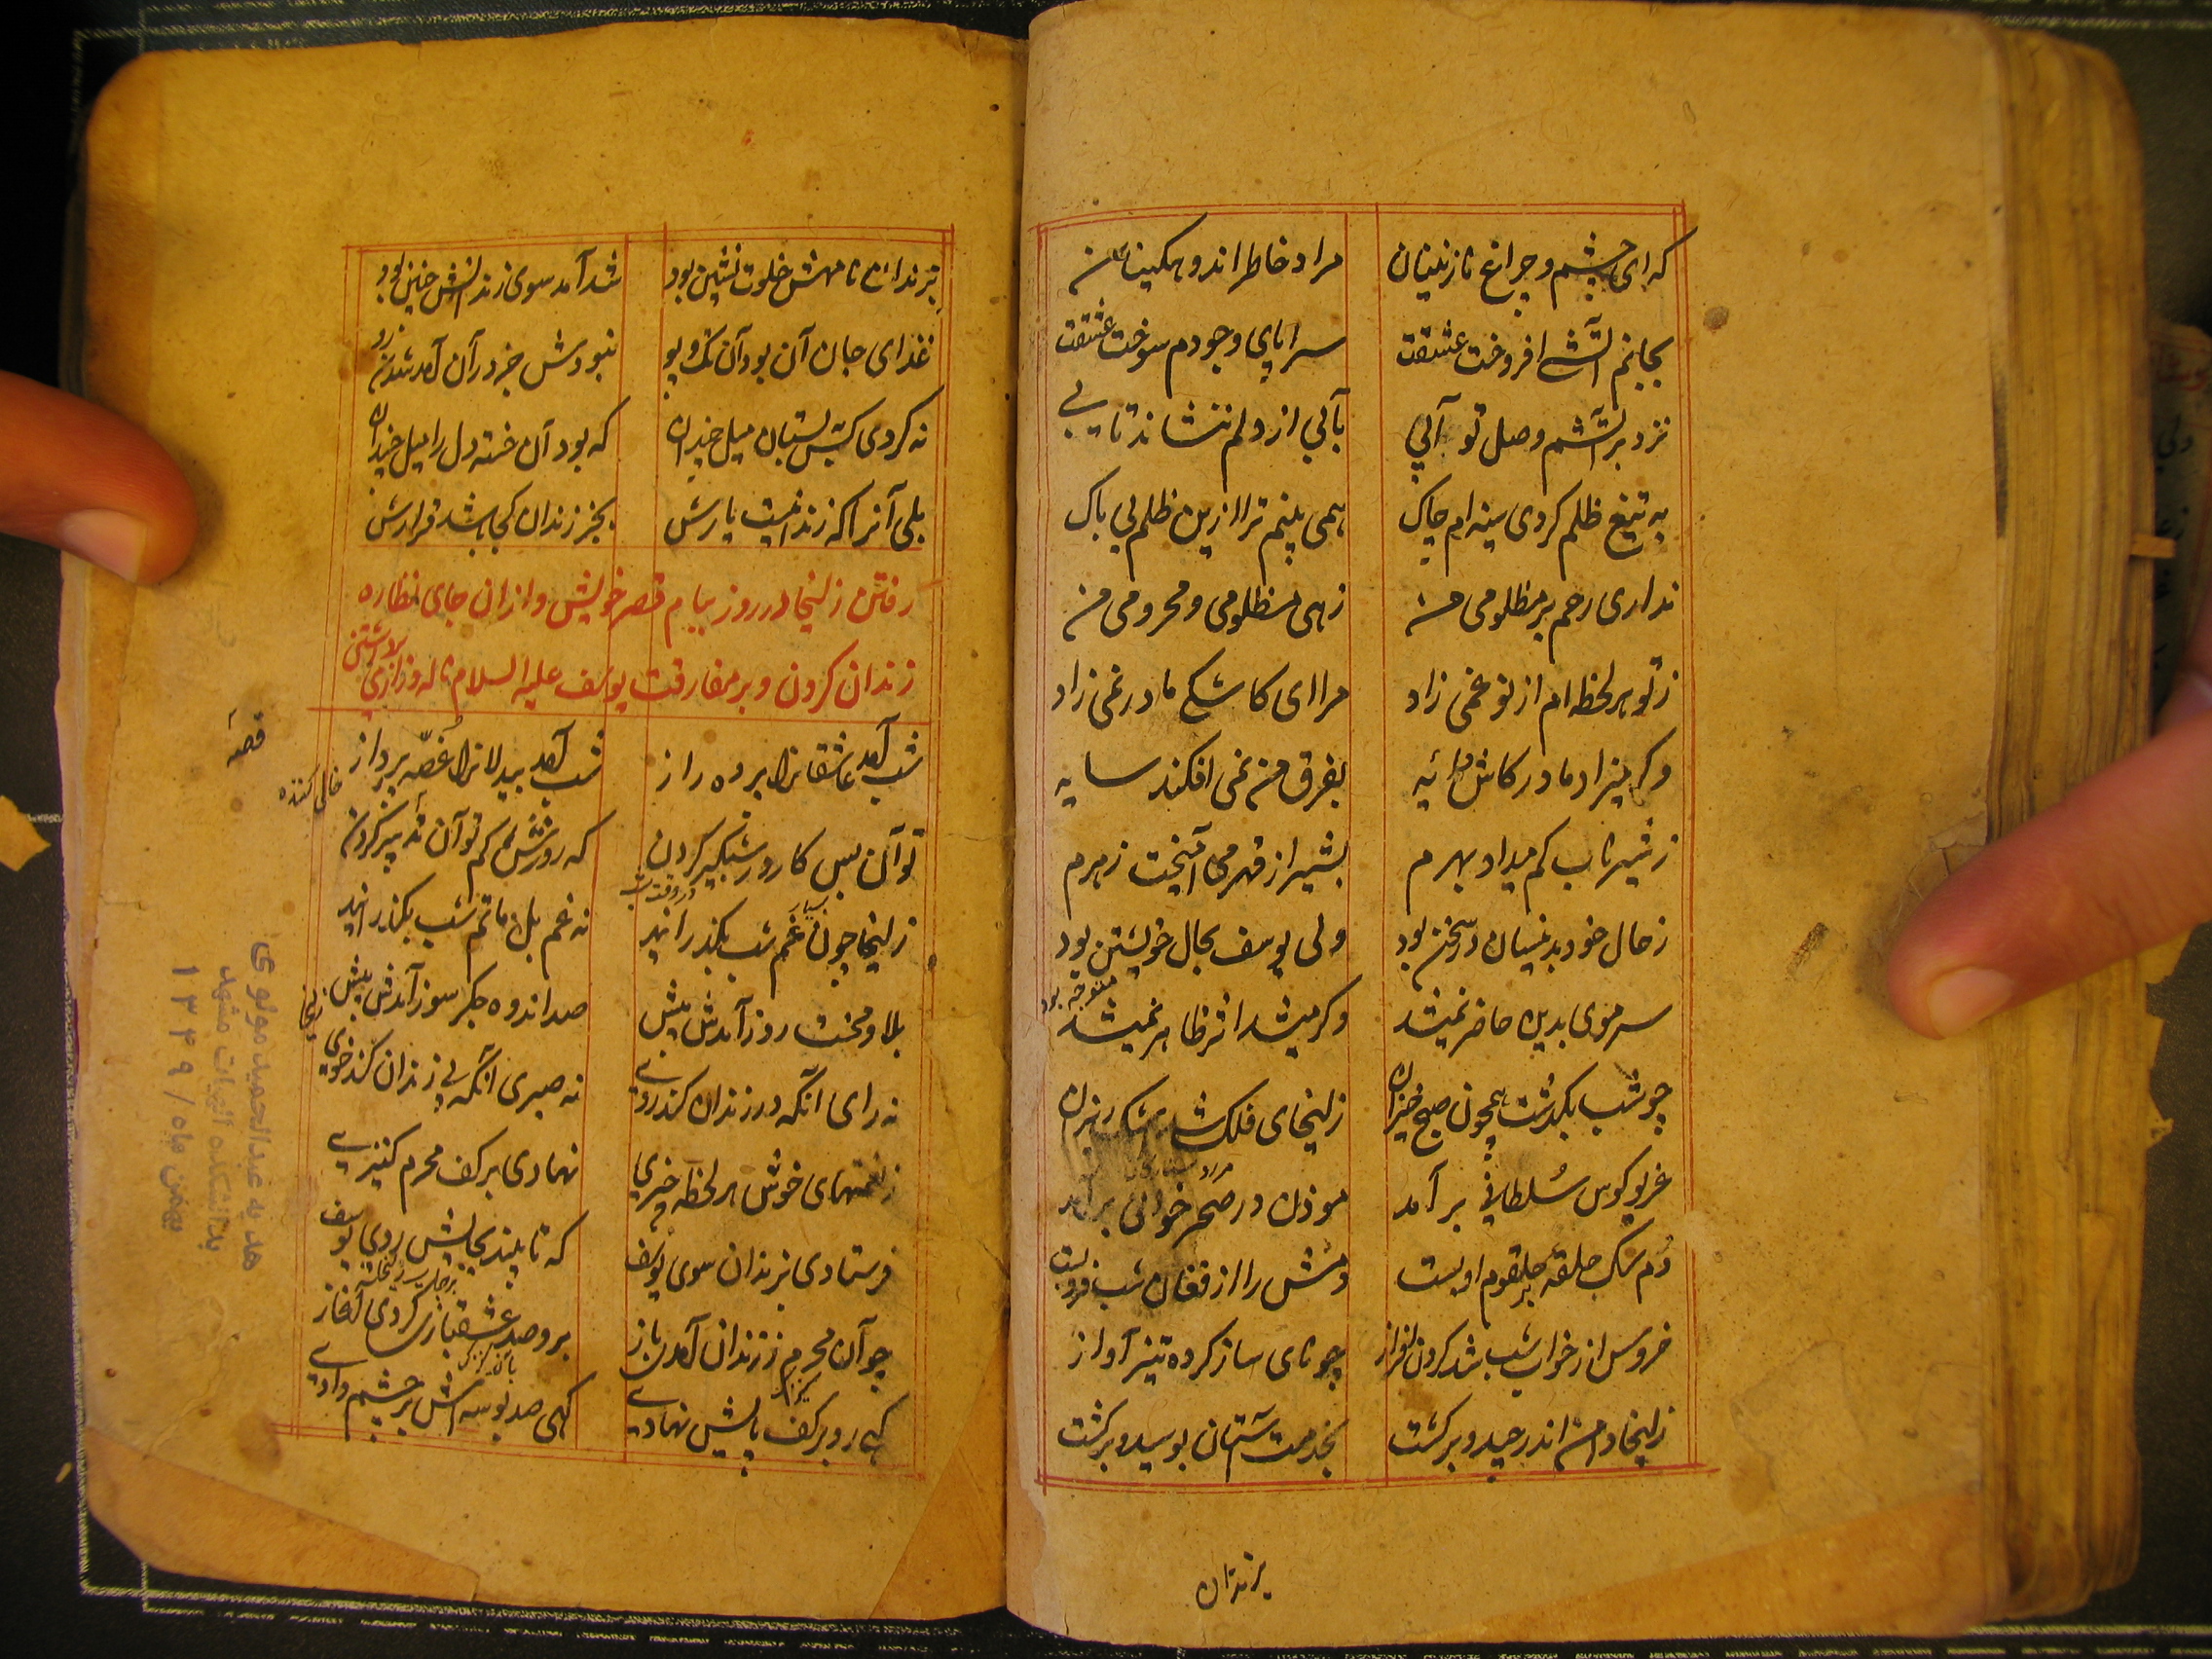 که ای چشم و چراغ نازنینان مراد خاطر اندوهگینان
بجانم آتشے افروخت عشقت سراپای وجودم سوخت عشقت
نزد بر آتشم وصل تو آبی بآبی از دلم ننشاند تابی
به تیغ ظلم کردی سینه ام چاک همی بینم ترا ازین ظلم بی باک
نداری رحم بر مظلومی من زهی مظلومی و محرومی من
ز تو هر لحظه ام از نو غمی زاد مرا ای کاشکے مادر نمی زاد
وگر میزاد مادر کاش دایه بفرق من نمی افکند سایه
ز شیر ناب کم میداد بهرم بشیر از قهر می آمیخت زهرم
ز حال خود بدینسان در سخن بود ولی یوسف بحال خویشتن بود
متوجه بود
سر موی بدین حاضر نمیشد وگر میشد اثر ظاهر نمیشد
چو شب بگذشت همچون صبح خیزان زلیخای فلک شد اشک ریزان
غریو کوس سلطانی بر آمد موذن در سحر خوانی بر آمد
دم سگ حلقه بر حلقوم او بست دمش را از فغان شب فروبست
خروس از خواب شب شد گردن افراز چو نای ساز کرده تیز آواز
زلیخا دامن اندر چید و برگشت بخدمت آستان بوسید و برگشت
بزندان
بزندان تا مهش خلوت نشین بود شد آمد سوی زندانش چنین بود
غذای جان آن بود آن تگ و پو نبودش جز در آن آمد شدن رو
نه کردی کس ببستان میل چندان که بود آن خسته دل را میل زندان
بلی آنرا که زندانیست یارش بجز زندان کجا باشد قرارش
رفتن زلیخا در روز ببام قصر خویش و از ان جای نظاره
زندان کردن و بر مفارقت یوسف علیه السلام ناله و زاری برداشتن
شب آمد عاشقانرا پرده راز شب آمد بیدلانرا غصه پرداز
قصه
خالی کننده
توان بس کار در شبگیر کردن که روزش کم توان تدبیر کردن
در وقت شب
زلیخا چون غم شب بگذرانید نه غم بل ماتم شب بگذرانید
بلا و محنت روز آمدش پیش صد اندوه جگر سوز آمدش پیش
زلیخا
نه رای آنکه در زندان کند روے نه صبری آنکه بی زندان کند خوی
ز نعمتهای خوش هر لحظه چیزی نهادی بر کف محرم کنیزے
فرستادی بزندان سوی یوسف که تا بیند بجایش روی یوسف
چو آن محرم ز زندان آمدی باز برو صد عشقبازی کردی آغاز
گهی رو بر کف پایش نهادے گهی صد بوسه اش بر چشم دادے
هدیه عبدالحمید مولوی
بدانشکده الهیات مشهد
بهمن ماه ۱۳۴۹